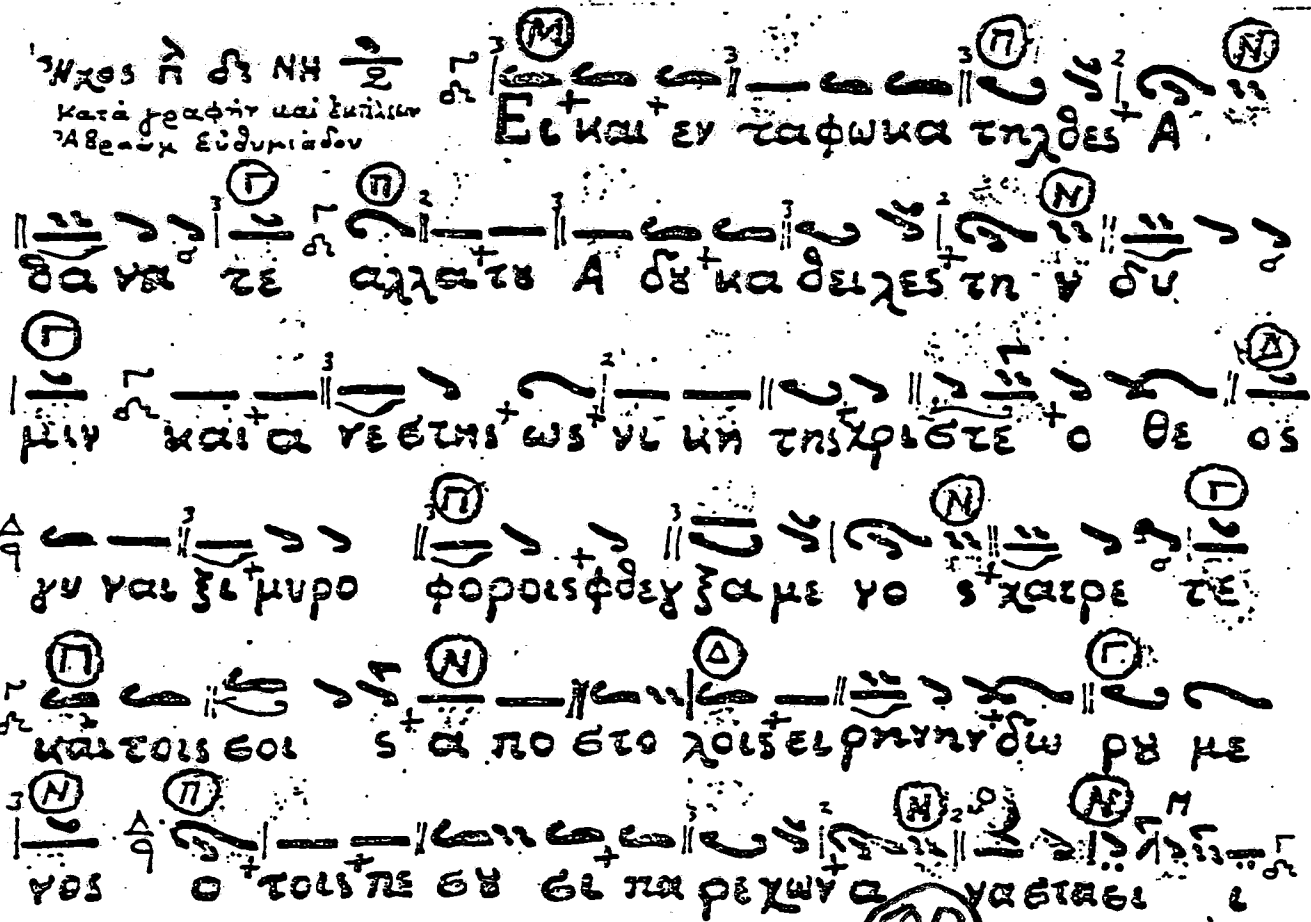 Ἦχος π δι ΝΗ
Κατὰ γραφὴν καὶ ἐκτέλεσιν
Ἀβραὰμ Εὐθυμιάδου
Μ Π Ν
Ει και εν ταφω κα τηλθες Α
Γ Π Ν
θα να τε αλλα τȣ Α δȣ κα θειλες τη ν δυ
Γ Δ
μιν και α νεστης ως νι κη της χριστε ο θε ος
Π Ν Γ
γυ ναι ξι μυρο φοροις φθεγ ξα με νο ς χαιρε τε
Π Ν Δ Γ
και τοις σοι ς α πο στο λοις ει ρηνην δω ρȣ με
Ν Π Ν Ν Μ
νος ο τοις πε σȣ σι πα ρεχων α ναστασι ι